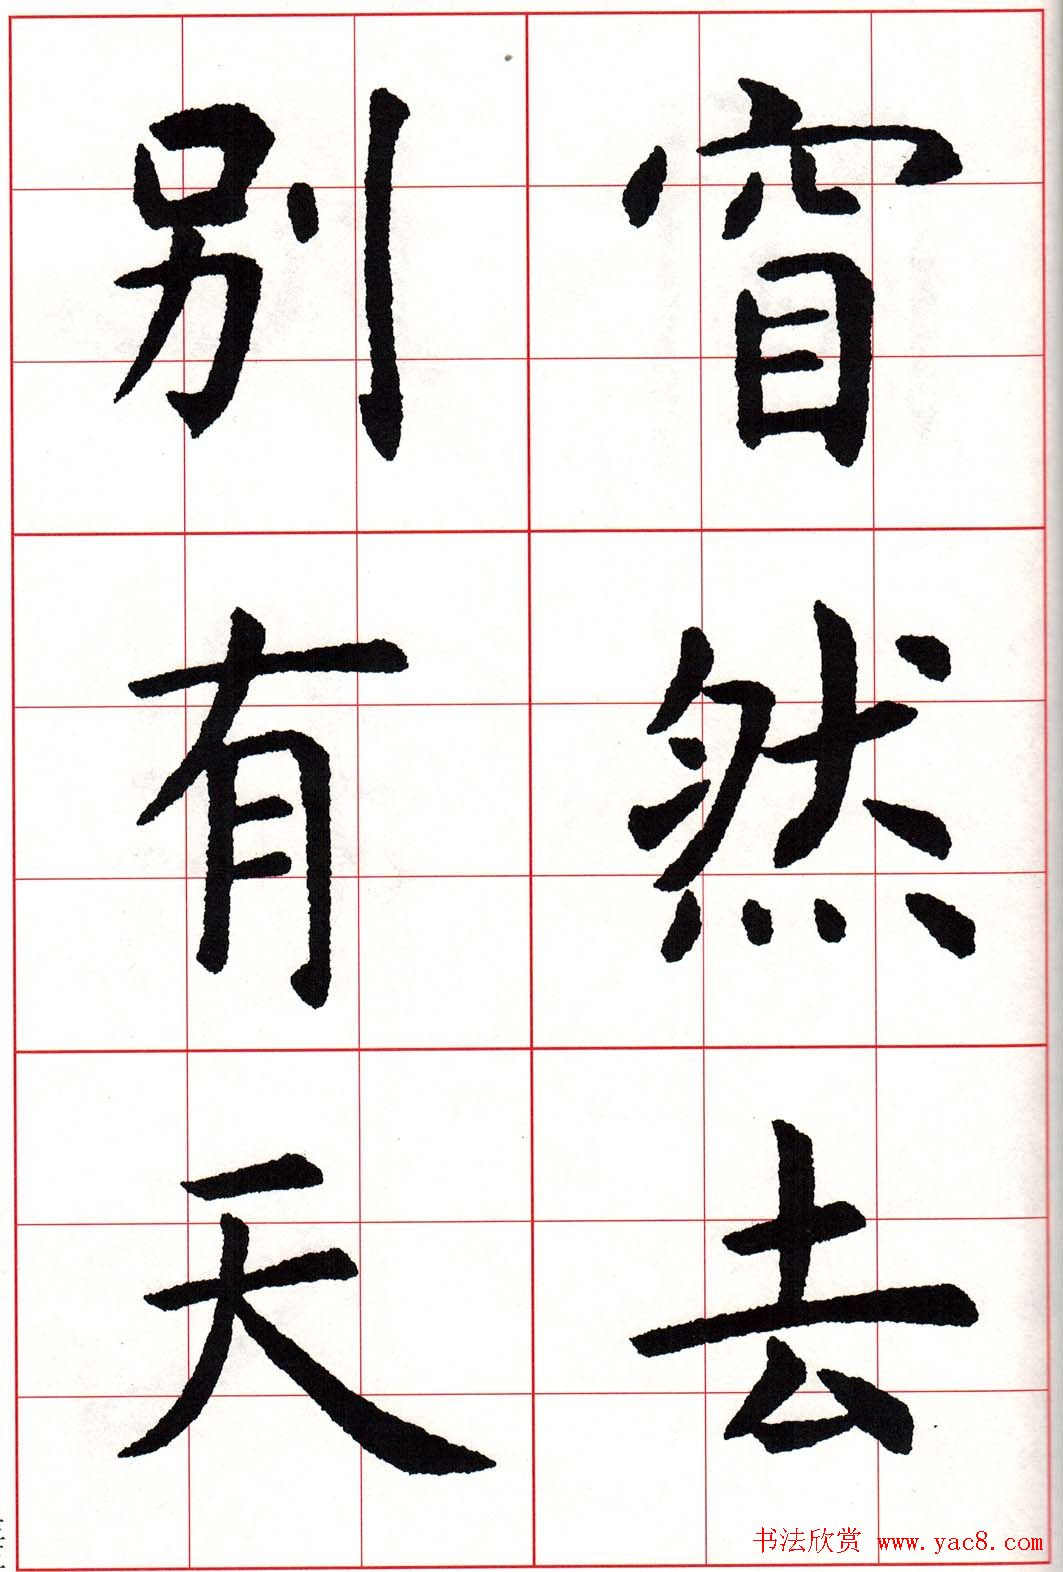 窅然去
别有天
书法欣赏 www.yac8.com